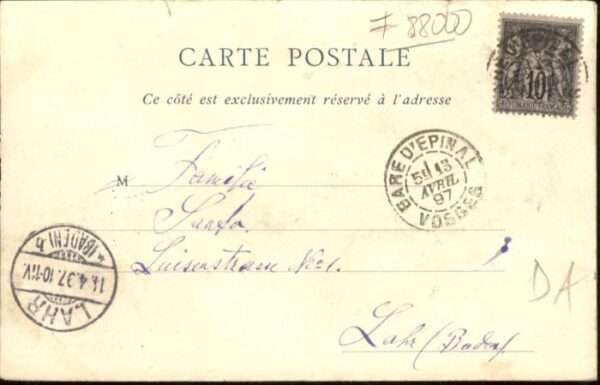 # 88000
CARTE POSTALE
Ce côté est exclusivement réservé à l'adresse
10
REPUBLIQUE FRANÇAISE
GARE D'EPINAL
5E 13
AVRIL
97
VOSGES
M Familie
Luisenstrasse No 1.
Lahr (Baden)
LAHR
14.4.97.10-11V.
* (BADEN) b
DA